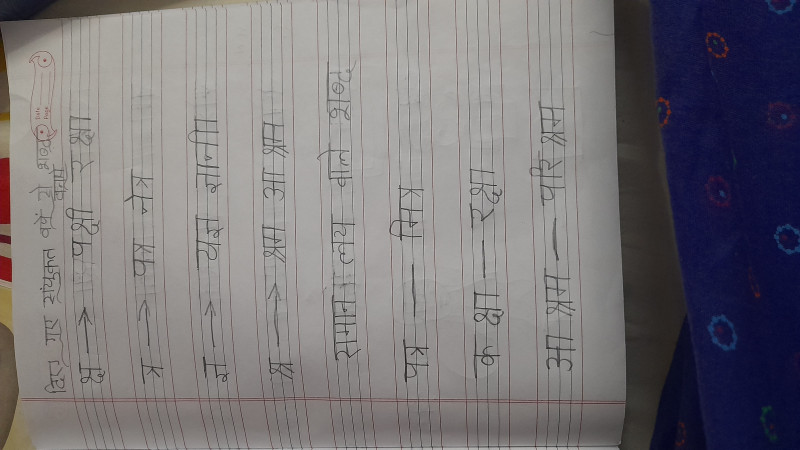 दिए गए संयुक्त वर्ण से शब्द बनाये
क्ष → पक्षी रक्षा
त्र → पत्र नेत्र
ज्ञ → यज्ञ ज्ञानी
श्र → श्रम आश्रम
समान लय वाले शब्द
पत्र — मित्र
कक्षा — रक्षा
आश्रम — परिश्रम